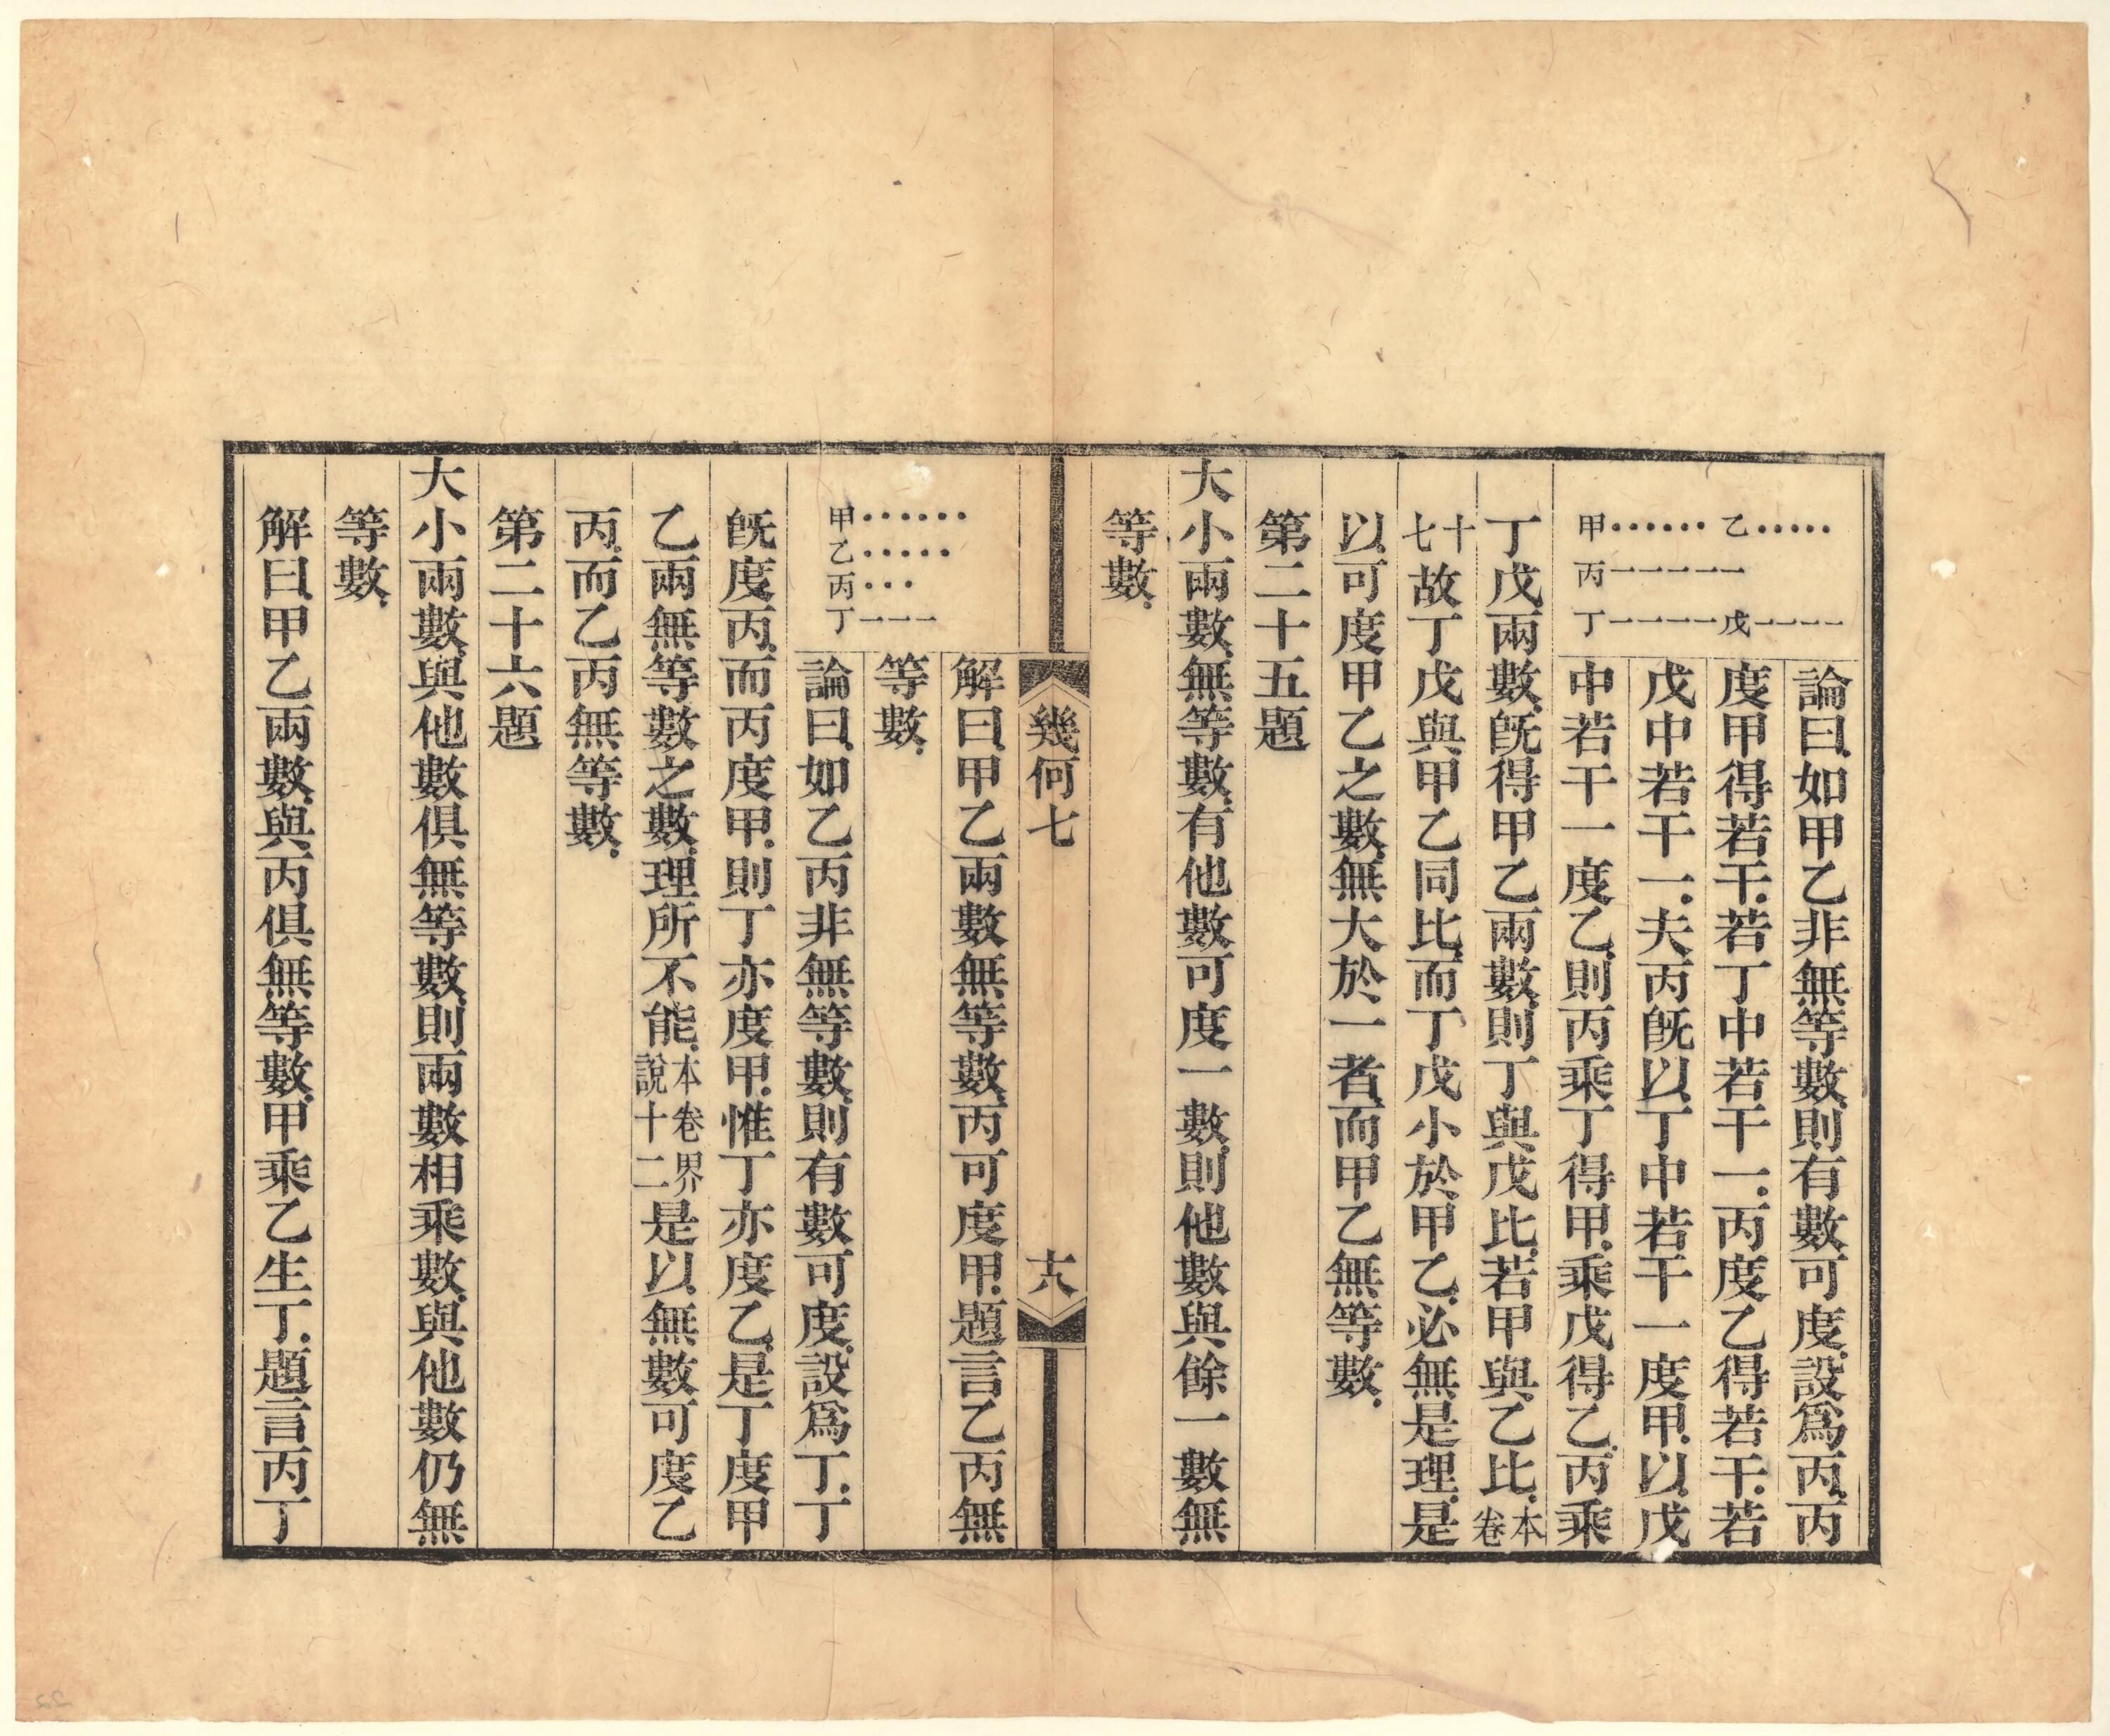 甲······ 乙·····
丙一一一一一一
丁一一一一一戊一一一一
論曰、如甲乙非無等數、則有數可度、設爲丙、丙
度甲得若干、若丁中若干一、丙度乙得若干、若
戊中若干一、夫丙旣以丁中若干一度甲、以戊
中若干一度乙、則丙乘丁得甲、乘戊得乙、丙乘
丁戊兩數、旣得甲乙兩數、則丁與戊比、若甲與乙比、本卷
十七故丁戊與甲乙同比、而丁戊小於甲乙、必無是理、是
以可度甲乙之數、無大於一者、而甲乙無等數、
第二十五題
大小兩數、無等數、有他數可度一數、則他數與餘一數無
等數、
幾何七
十八
甲······
乙·····
丙···
丁一一一
解曰、甲乙兩數無等數、丙可度甲、題言乙丙無
等數、
論曰、如乙丙非無等數、則有數可度、設爲丁、丁
旣度丙、而丙度甲、則丁亦度甲、惟丁亦度乙、是丁度甲
乙兩無等數之數、理所不能、本卷界說十二是以無數可度乙
丙、而乙丙無等數、
第二十六題
大小兩數、與他數俱無等數、則兩數相乘數、與他數仍無
等數、
解曰、甲乙兩數、與丙俱無等數、甲乘乙生丁、題言丙丁